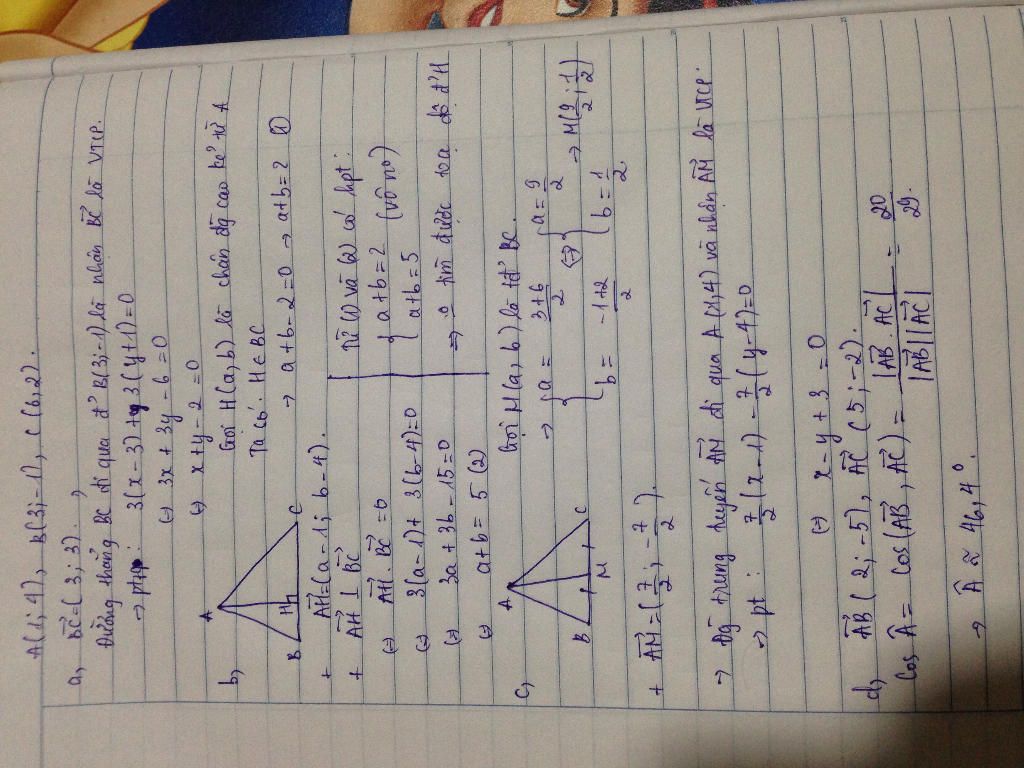 A(1; 4), B(3; -1), C(6, 2).
a, BC⃗ = (3; 3).
Đường thẳng BC đi qua đ' B(3; -1) là nhân BC⃗ là VTCP.
→ pt: 3(x - 3) + 3(y + 1) = 0
(=) 3x + 3y - 6 = 0
(=) x + y - 2 = 0
b, Gọi H(a, b) là chân đg cao kẻ từ A
Ta có: H ∈ BC
→ a + b - 2 = 0 → a + b = 2 (1)
A
B H C
+ AH⃗ = (a - 1; b - 4).
+ AH⃗ ⊥ BC⃗
(=) AH⃗ . BC⃗ = 0
(=) 3(a - 1) + 3(b - 4) = 0
(=) 3a + 3b - 15 = 0
(=) a + b = 5 (2)
Từ (1) và (2) có hpt:
{ a + b = 2
{ a + b = 5 (vô no)
=> o tìm được tọa độ đ' H
c, Gọi M(a, b) là tđ' BC.
A
B M C
→ { a = (3 + 6)/2 (=) { a = 9/2 → M(9/2; 1/2)
{ b = (-1 + 2)/2 { b = 1/2
+ AM⃗ = (7/2; -7/2).
→ Đg trung tuyến AM⃗ đi qua A(1,4) và nhân AM⃗ là VTCP.
→ pt: 7/2(x - 1) - 7/2(y - 4) = 0
(=) x - y + 3 = 0
d, AB⃗(2; -5), AC⃗(5; -2).
Cos Â = cos(AB⃗, AC⃗) = |AB⃗ . AC⃗| / |AB⃗||AC⃗| = 20/29
→ Â ≈ 46,4°.